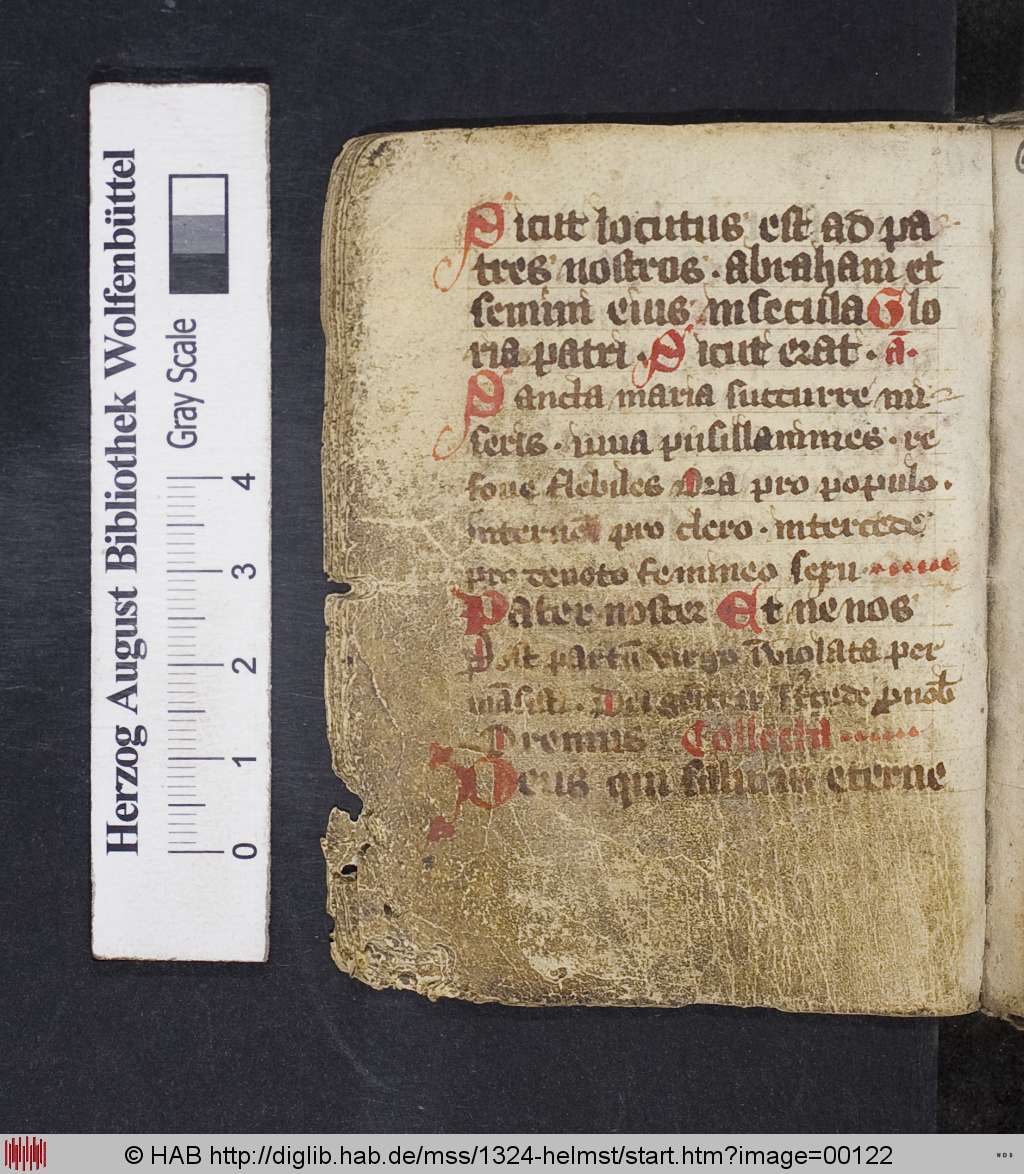 Herzog August Bibliothek Wolfenbüttel
Gray Scale
0 1 2 3 4
Sicut locutus est ad pa
tres nostros · abraham et
semini eius in secula Glo
ria patri · Sicut erat · a̅ ·
Sancta maria succurre mi
seris · iuua pusillanimes · re
foue flebiles Ora pro populo ·
interueni pro clero · intercede
pro deuoto femineo sexu
Pater noster Et ne nos
Post partu̅ virgo i̅violata per
ma̅sisti · Dei ge̅itrix i̅tercede p nob̅
Oremus Collecta
Deus qui salutis eterne
© HAB http://diglib.hab.de/mss/1324-helmst/start.htm?image=00122